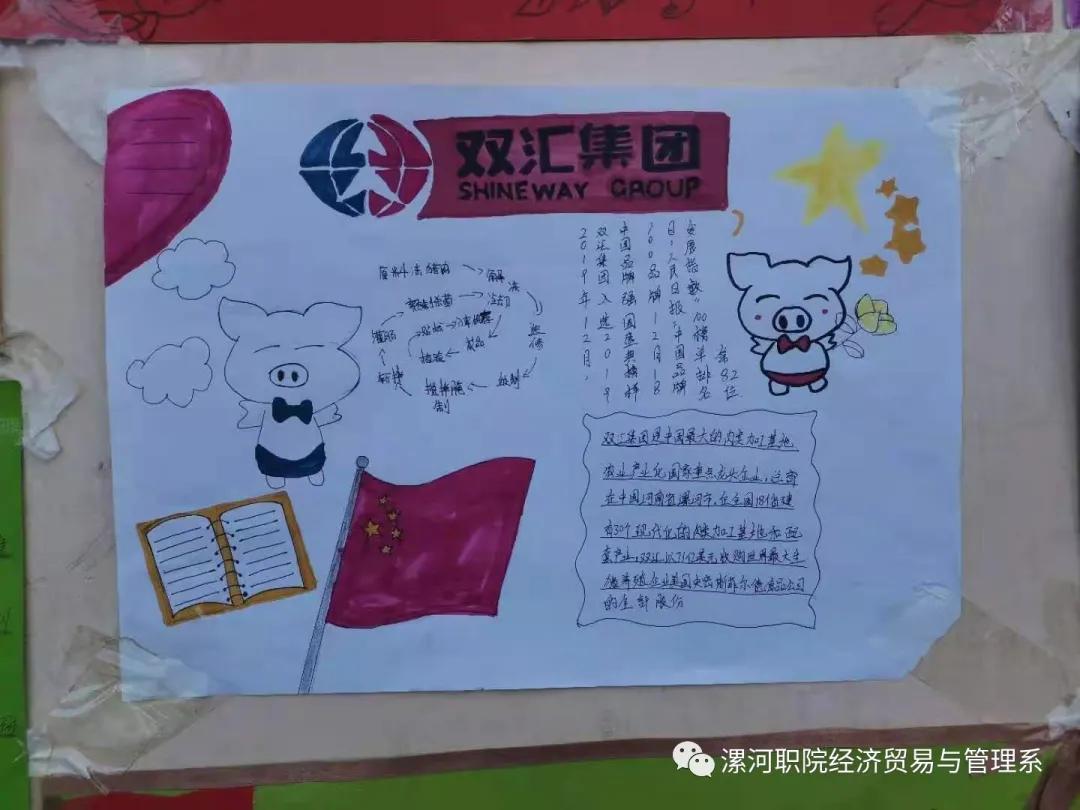 双汇集团
SHINEWAY GROUP
解冻
冷却
贴标
成品
灌肠
2019年12月，
双汇集团入选2019
中国品牌强国盛典榜样
100品牌12月18
日，人民日报“中国品牌
发展指数”100榜单排名
第82位
双汇集团是中国最大的肉类加工基地
农业产业化国家重点龙头企业，总部
在中国河南省漯河市，在全国18个省建
有30个现代化的肉类加工基地和配
套产业，双汇以71亿美元收购世界最大生
猪养殖企业美国史密斯菲尔德食品公司
的全部股份
漯河职院经济贸易与管理系